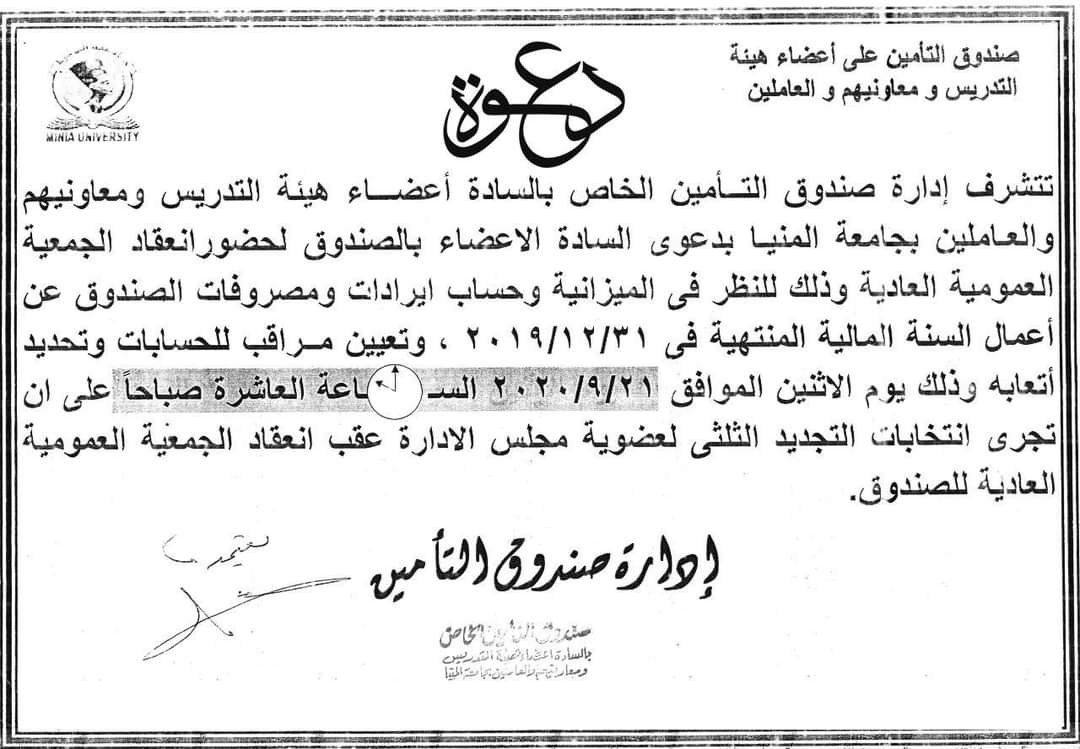 صندوق التأمين على أعضاء هيئة
التدريس و معاونيهم و العاملين
MINIA UNIVERSITY
دعوة
تتشرف إدارة صندوق التــأمين الخاص بالسادة أعضــــاء هيئة التدريس ومعاونيهم
والعـاملين بجامعة المنيـا بدعوى السادة الاعضاء بالصندوق لحضورانعقاد الجمعية
العمومية العادية وذلك للنظر فى الميزانية وحساب ايرادات ومصروفات الصندوق عن
أعمال السنة المالية المنتهية فى ٢٠١٩/١٢/٣١ ، وتعيين مـراقب للحسابات وتحديد
أتعابه وذلك يوم الاثنين الموافق ٢٠٢٠/٩/٢١ الســاعة العاشرة صباحاً على ان
تجرى انتخابات التجديد الثلثى لعضوية مجلس الادارة عقب انعقاد الجمعية العمومية
العادية للصندوق.
إدارة صندوق التأمين
يعتمد
صندوق التأمين الخاص
بالسادة اعضاء هيئة التدريس
ومعاونيهم والعاملين بجامعة المنيا